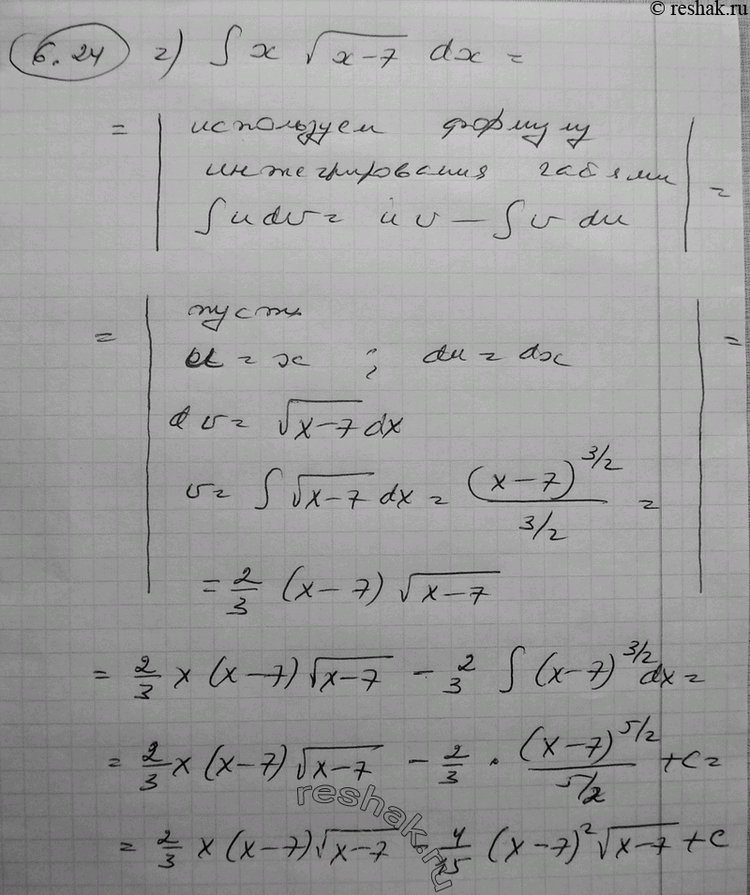 © reshak.ru
6.24 г) ∫ x √(x-7) dx =
= | используем формулу
интегрирования частями | =
∫ u dv = u v - ∫ v du
= | пусть | =
u = x ; du = dx
dv = √(x-7) dx
v = ∫ √(x-7) dx = (x-7)^(3/2) / (3/2) =
= 2/3 (x-7) √(x-7)
= 2/3 x (x-7) √(x-7) - 2/3 ∫ (x-7)^(3/2) dx =
= 2/3 x (x-7) √(x-7) - 2/3 · (x-7)^(5/2) / (5/2) + c =
= 2/3 x (x-7) √(x-7) - 4/15 (x-7)² √(x-7) + c
reshak.ru